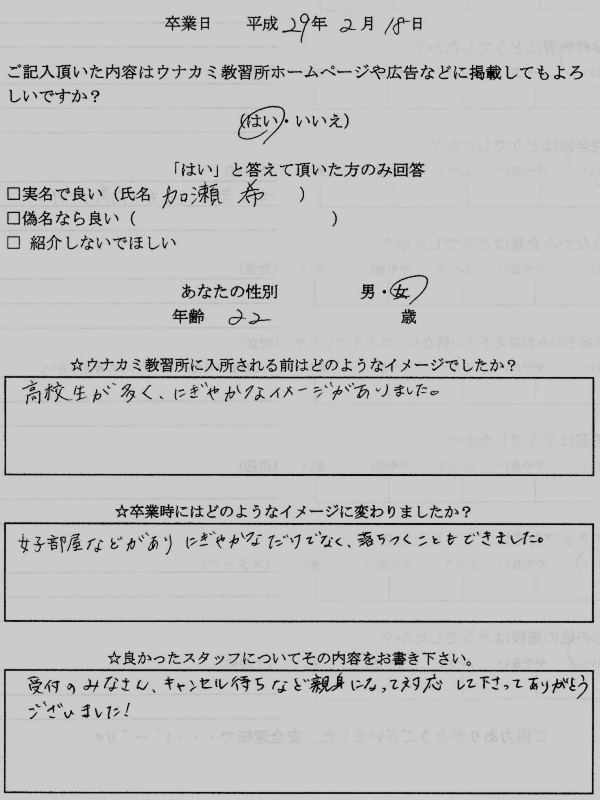 卒業日 平成29年2月18日
ご記入頂いた内容はウナカミ教習所ホームページや広告などに掲載してもよろ
しいですか？
（はい・いいえ）
「はい」と答えて頂いた方のみ回答
□実名で良い（氏名 加瀬 希 ）
□偽名なら良い（ ）
□ 紹介しないでほしい
あなたの性別 男・女
年齢 22 歳
☆ウナカミ教習所に入所される前はどのようなイメージでしたか？
高校生が多く、にぎやかなイメージがありました。
☆卒業時にはどのようなイメージに変わりましたか？
女子部屋などがありにぎやかなだけでなく、落ちつくこともできました。
☆良かったスタッフについてその内容をお書き下さい。
受付のみなさん、キャンセル待ちなど親身になって対応して下さってありがとう
ございました！